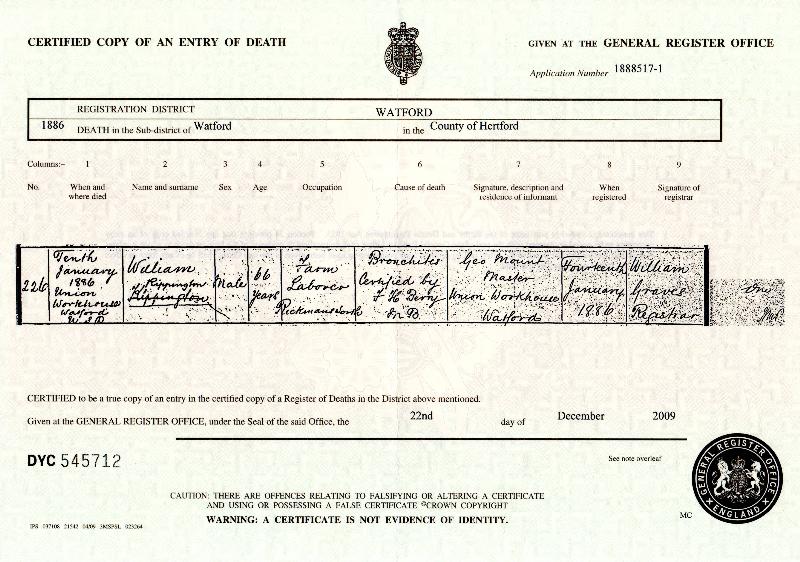 CERTIFIED COPY OF AN ENTRY OF DEATH
GIVEN AT THE GENERAL REGISTER OFFICE
Application Number 1888517-1
REGISTRATION DISTRICT WATFORD
1886 DEATH in the Sub-district of Watford in the County of Hertford
Columns:- 1 2 3 4 5 6 7 8 9
No. When and where died Name and surname Sex Age Occupation Cause of death Signature, description and residence of informant When registered Signature of registrar
226
Tenth
January
1886
Union
Workhouse
Watford
William
Rippington
Rippington
Male
66
Years
of
Farm
Laborer
Rickmansworth
Bronchitis
Certified by
Geo Mount
Master
Union Workhouse
Watford
Fourteenth
January
1886
William
Graves
Registrar
CERTIFIED to be a true copy of an entry in the certified copy of a Register of Deaths in the District above mentioned.
Given at the GENERAL REGISTER OFFICE, under the Seal of the said Office, the 22nd day of December 2009
DYC 545712
See note overleaf
CAUTION: THERE ARE OFFENCES RELATING TO FALSIFYING OR ALTERING A CERTIFICATE
AND USING OR POSSESSING A FALSE CERTIFICATE ©CROWN COPYRIGHT
WARNING: A CERTIFICATE IS NOT EVIDENCE OF IDENTITY.
GENERAL REGISTER OFFICE
ENGLAND
MC